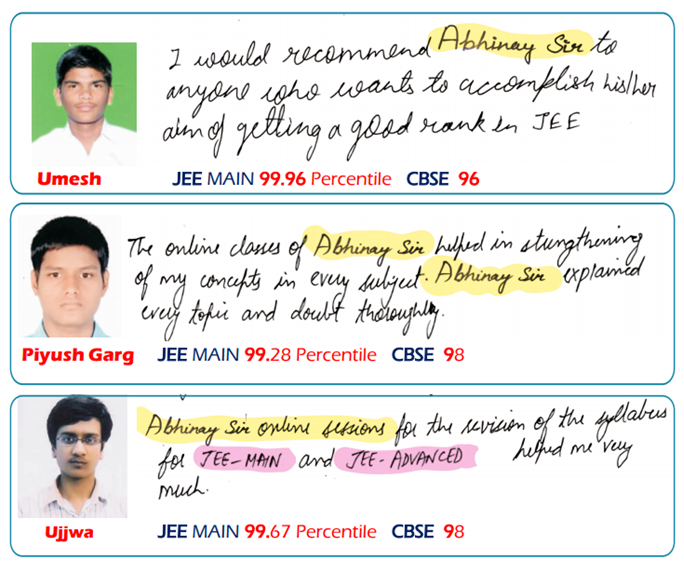 I would recommend Abhinay Sir to
anyone who wants to accomplish his/her
aim of getting a good rank in JEE
Umesh
JEE MAIN 99.96 Percentile CBSE 96
The online classes of Abhinay Sir helped in strungthening
of my concepts in every subject. Abhinay Sir explained
every topic and doubt thoroughly.
Piyush Garg
JEE MAIN 99.28 Percentile CBSE 98
Abhinay Sir online sessions for the revision of the syllabus
for JEE-MAIN and JEE-ADVANCED helped me very
much.
Ujjwa
JEE MAIN 99.67 Percentile CBSE 98